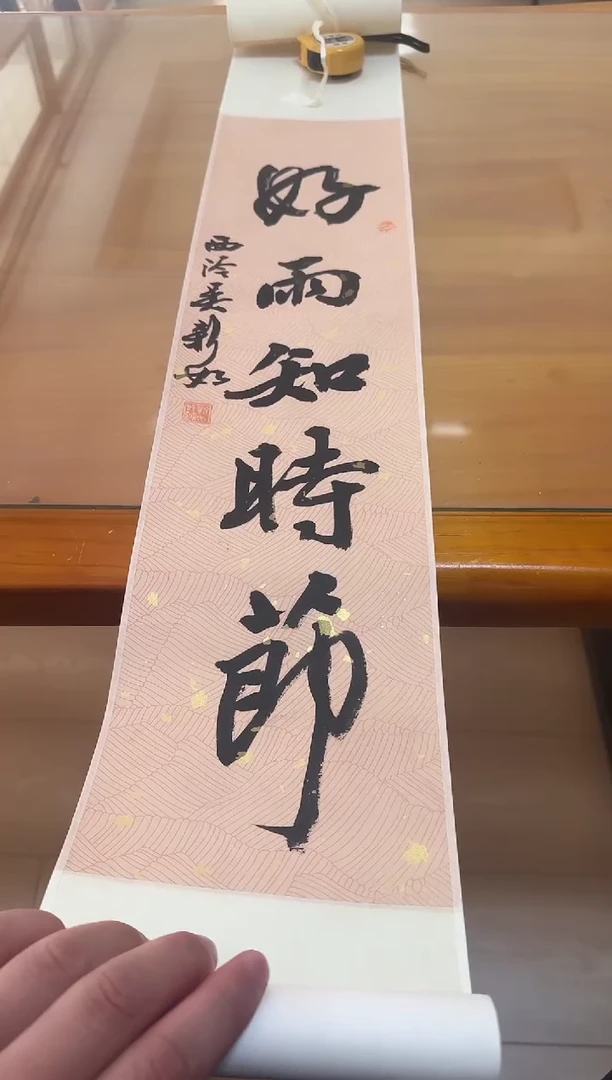 好雨知時節
西泠吴新如